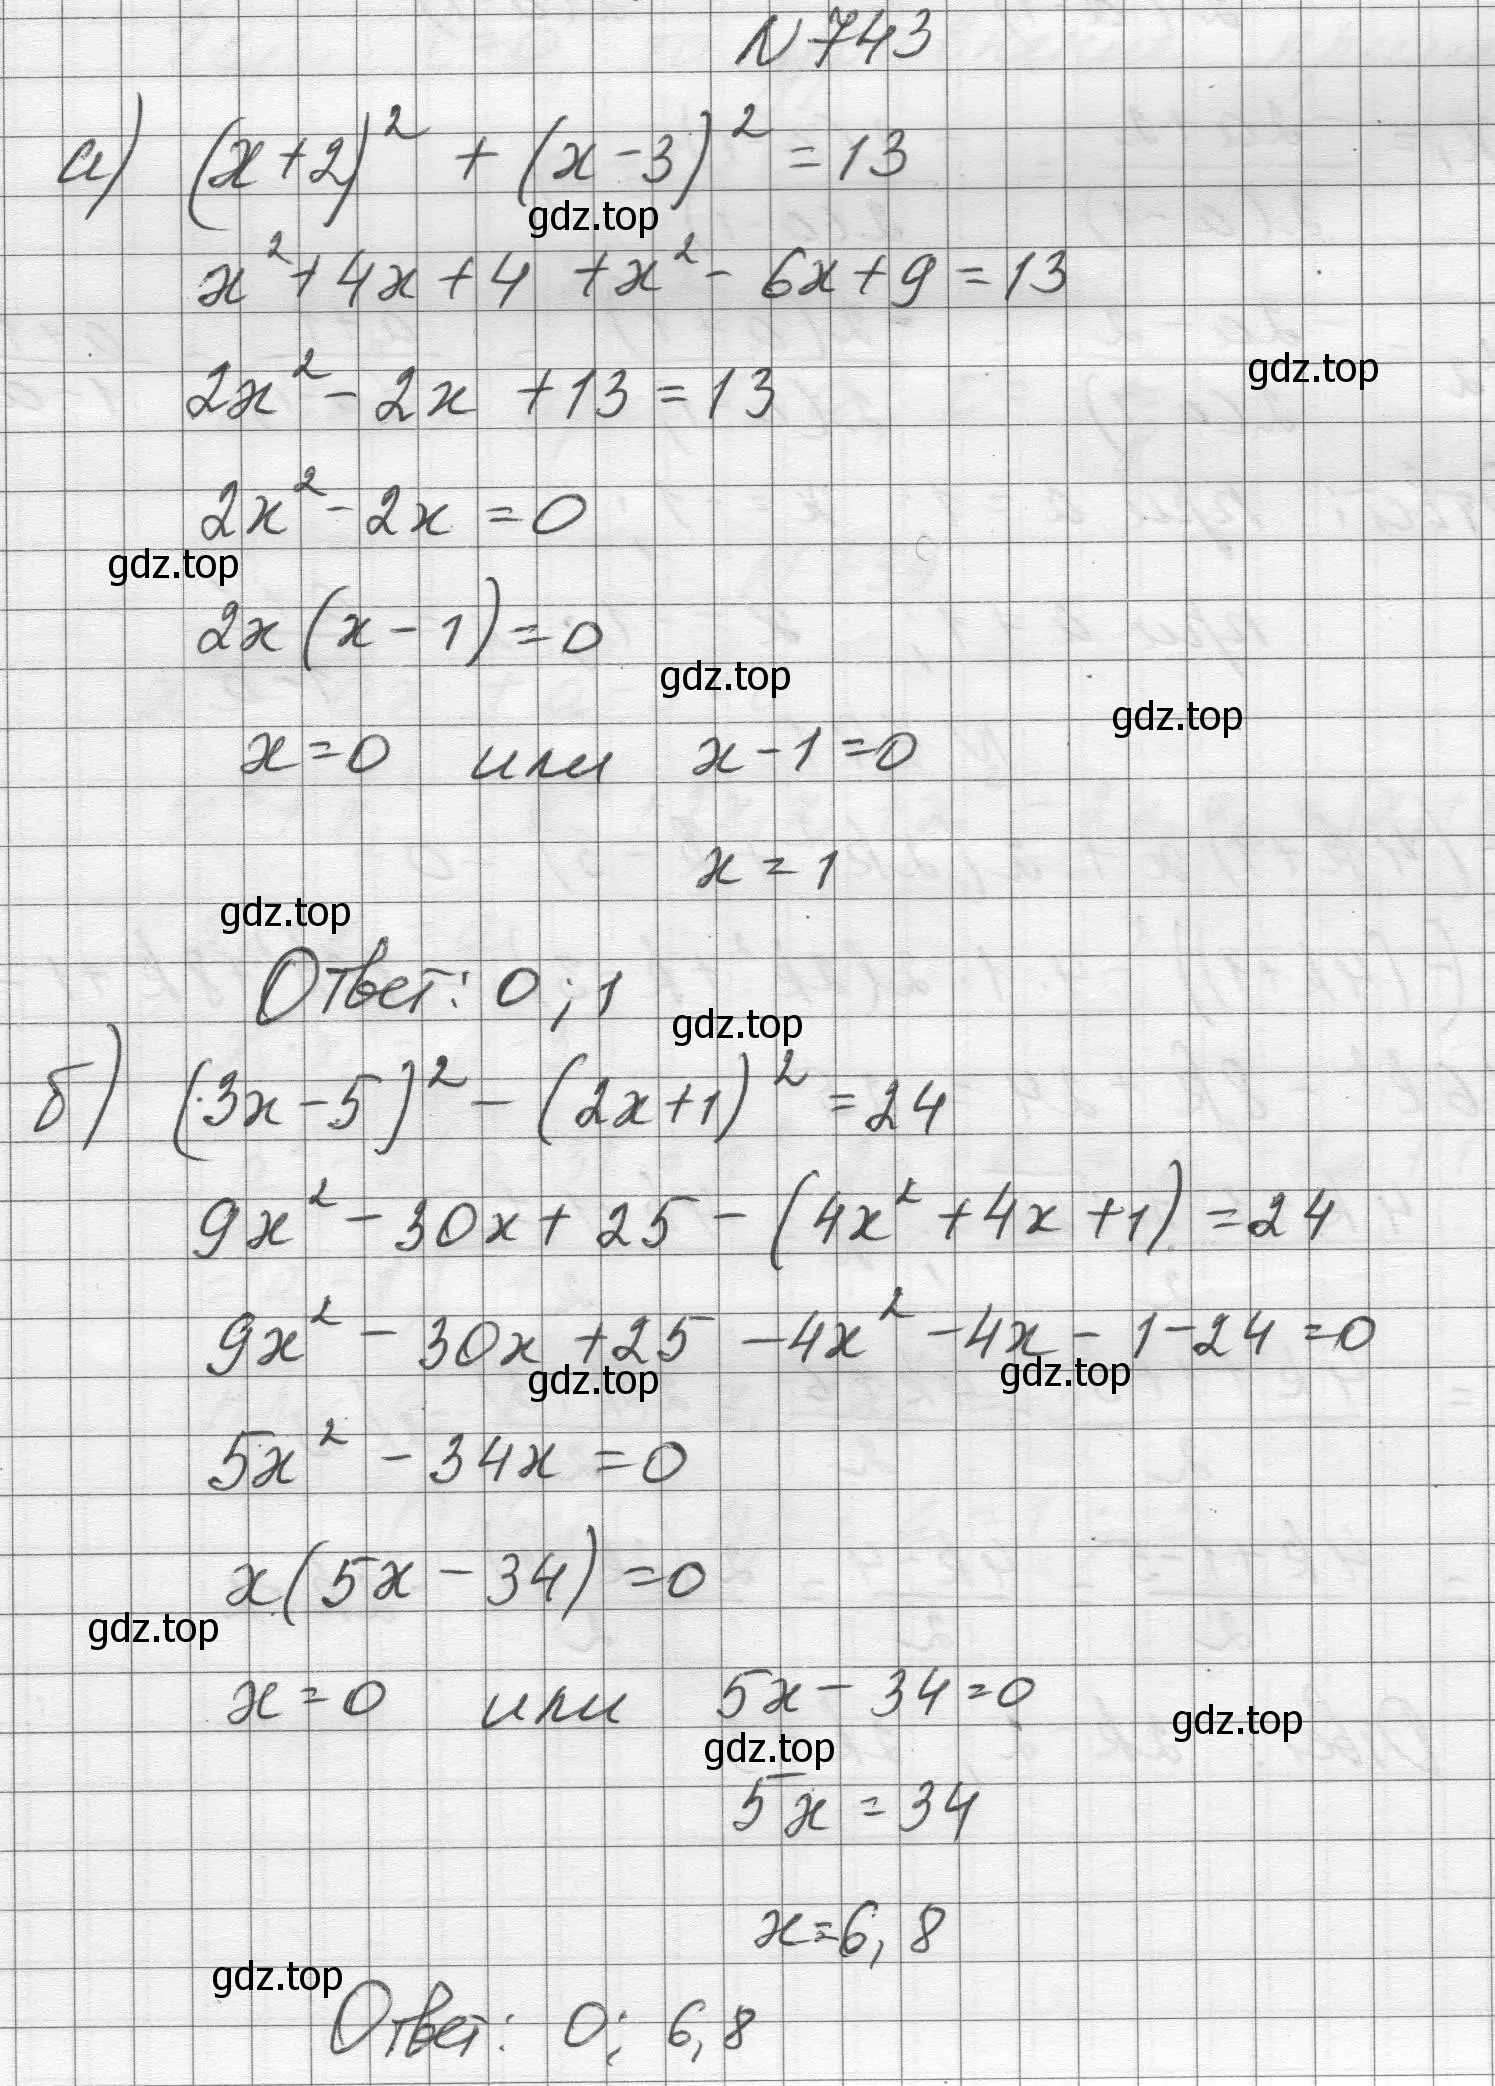 N 743
а) (x+2)² + (x-3)² = 13
gdz.top
x² + 4x + 4 + x² - 6x + 9 = 13
2x² - 2x + 13 = 13
gdz.top
2x² - 2x = 0
gdz.top
2x(x-1) = 0
gdz.top
gdz.top
x = 0 или x - 1 = 0
x = 1
gdz.top
Ответ: 0; 1
gdz.top
б) (3x-5)² - (2x+1)² = 24
9x² - 30x + 25 - (4x² + 4x + 1) = 24
9x² - 30x + 25 - 4x² - 4x - 1 - 24 = 0
gdz.top gdz.top
5x² - 34x = 0
x(5x - 34) = 0
gdz.top
x = 0 или 5x - 34 = 0
gdz.top
gdz.top
5x = 34
x = 6,8
gdz.top
Ответ: 0; 6,8